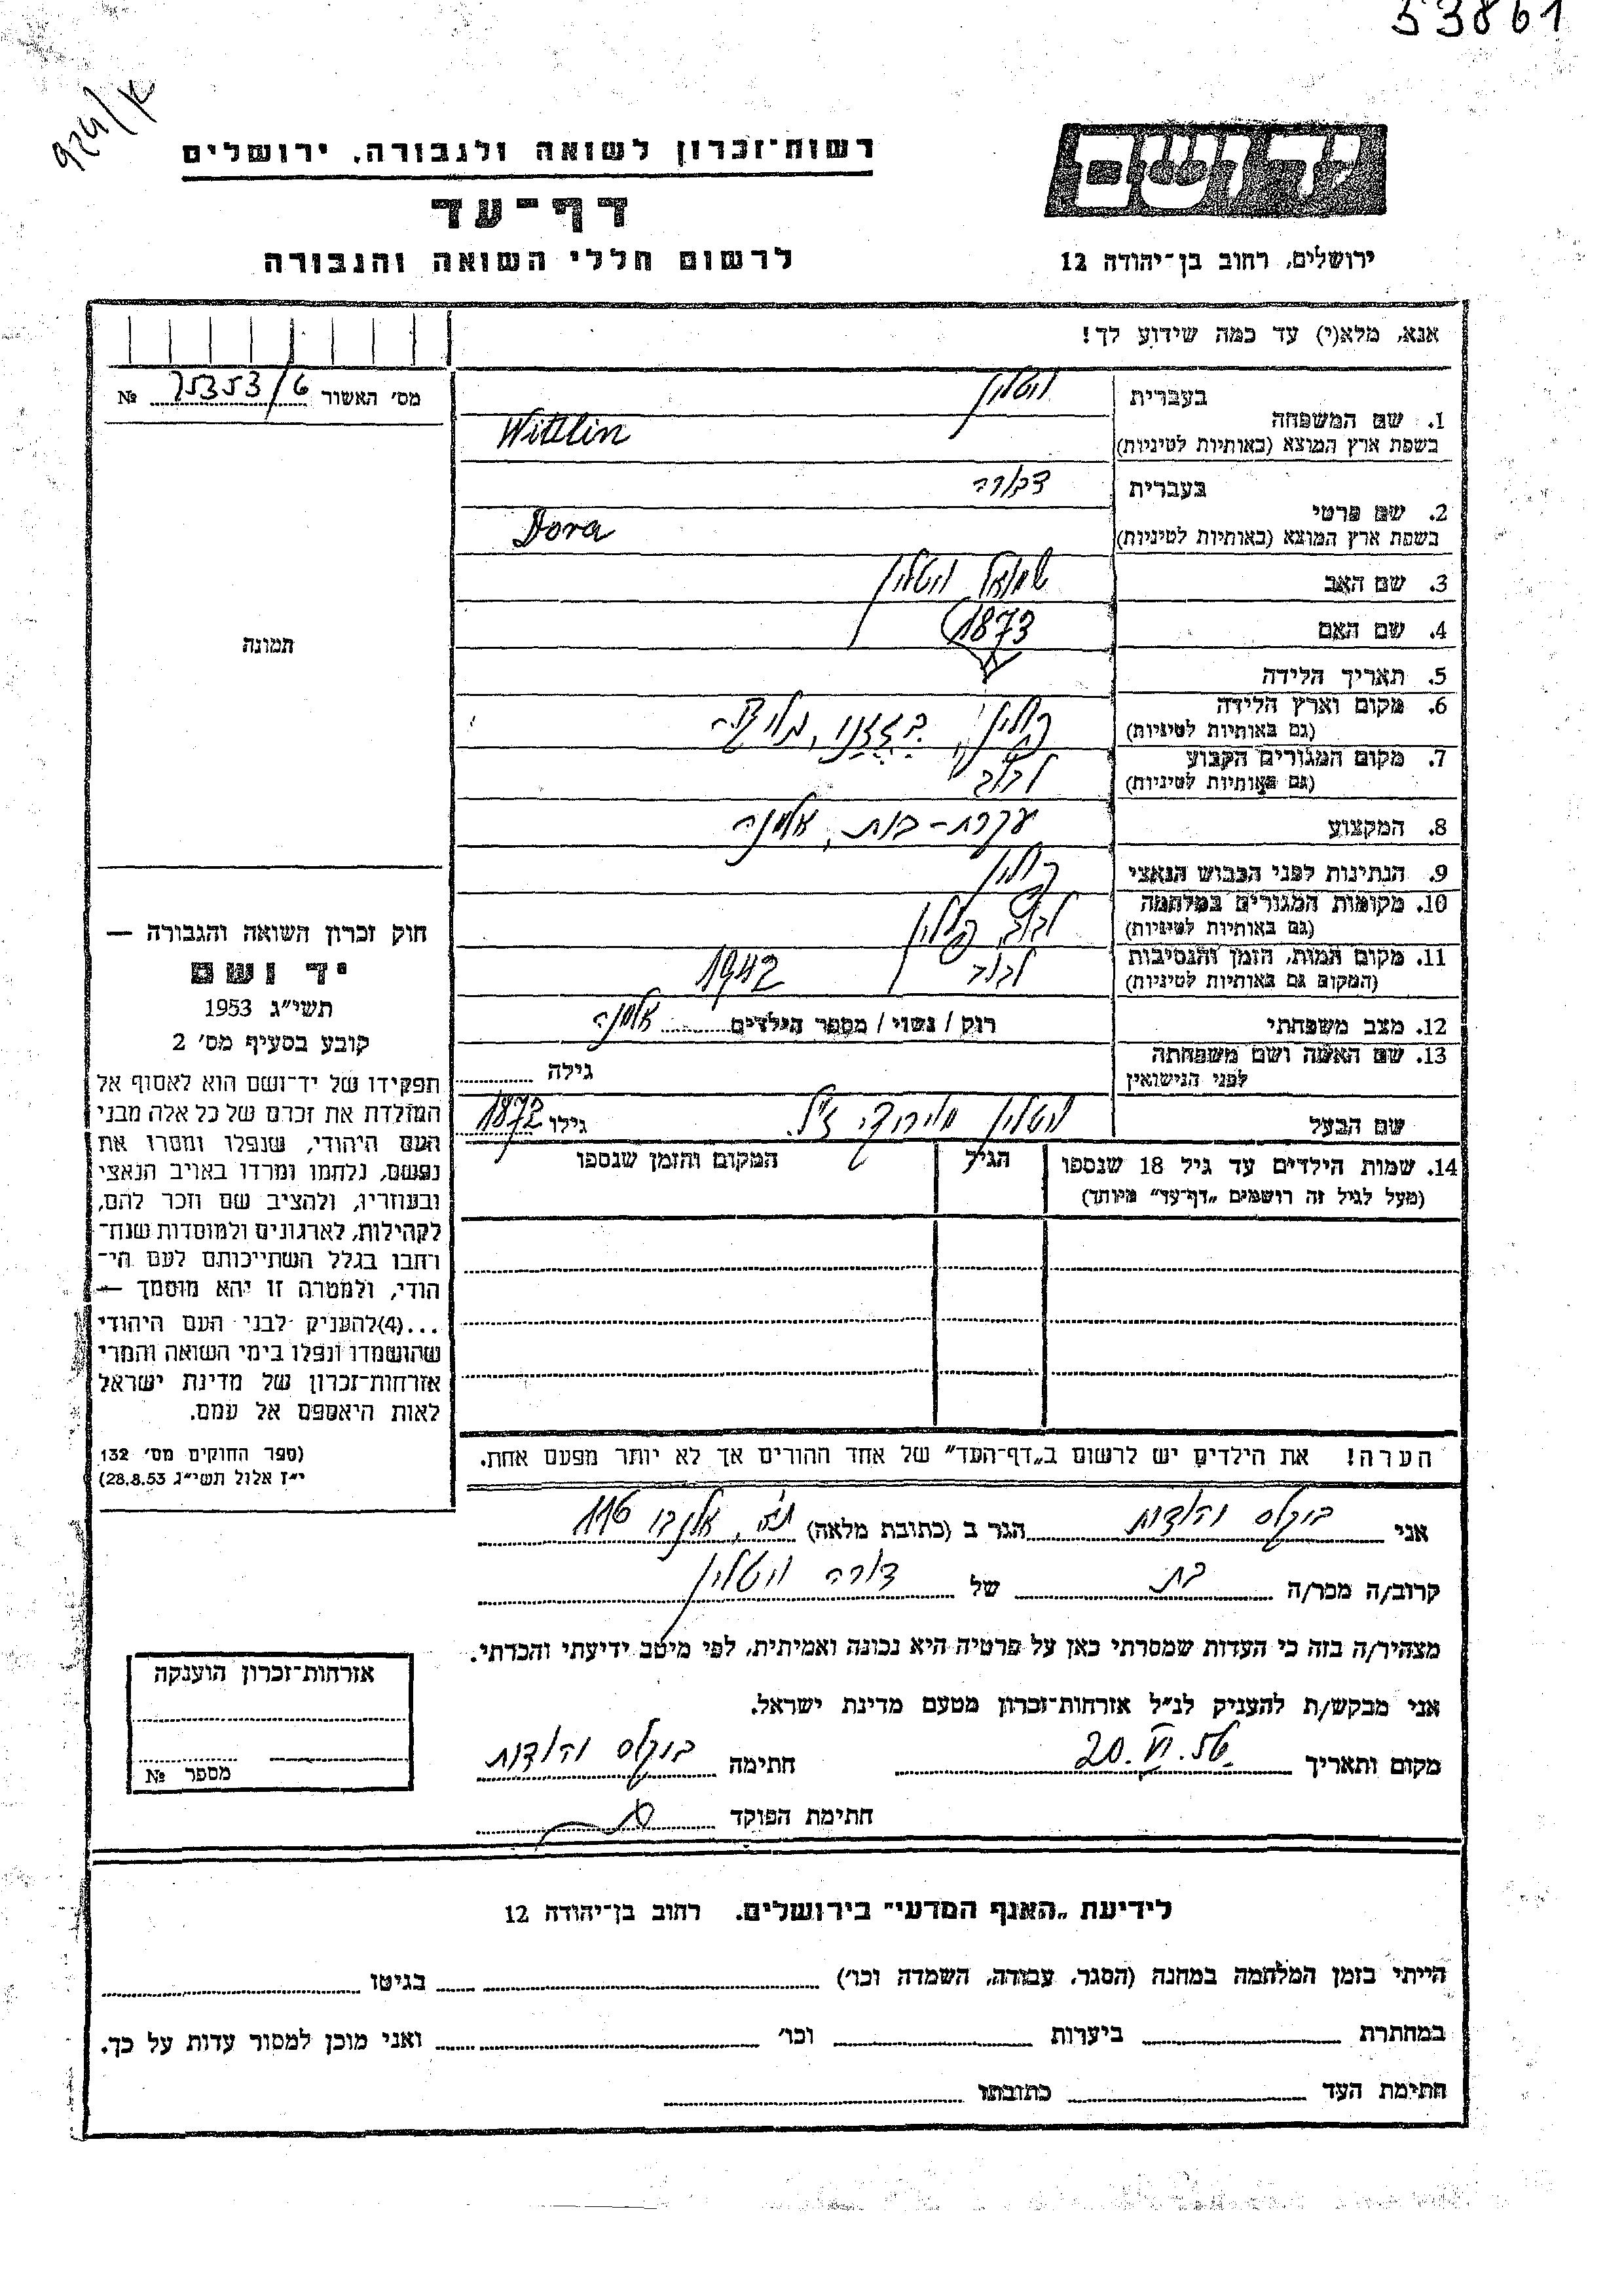 53861
924/א
יד ושם
רשות־זכרון לשואה ולגבורה, ירושלים
דף־עד
לרשום חללי השואה והגבורה
ירושלים, רחוב בן־יהודה 12
אנא, מלא(י) עד כמה שידוע לך!
מס' האשור 75353/6 №
תמונה
1. שם המשפחה
בעברית ויטלין
בשפת ארץ המוצא (באותיות לטיניות) Wittlin
2. שם פרטי
בעברית דבורה
בשפת ארץ המוצא (באותיות לטיניות) Dora
3. שם האב שמואל ויטלין
4. שם האם 1873
5. תאריך הלידה
6. מקום וארץ הלידה
(גם באותיות לטיניות) פולין, גליציה
7. מקום המגורים הקבוע
(גם באותיות לטיניות) לבוב
8. המקצוע עקרת-בית, אלמנה
9. הנתינות לפני הכבוש הנאצי פולין
10. מקומות המגורים במלחמה
(גם באותיות לטיניות) לבוב, פולין
11. מקום המות, הזמן והנסיבות
(המקום גם באותיות לטיניות) לבוב 1942
12. מצב משפחתי רוק / נשוי / מספר הילדים אלמנה
13. שם האשה ושם משפחתה
לפני הנישואין גילה
שם הבעל ויטלין ז"ל גילו 1872
14. שמות הילדים עד גיל 18 שנספו הגיל המקום והזמן שנספו
(מעל לגיל זה רושמים „דף־עד" מיוחד)
חוק זכרון השואה והגבורה —
יד ושם
תשי״ג 1953
קובע בסעיף מס' 2
תפקידו של יד־ושם הוא לאסוף אל
המולדת את זכרם של כל אלה מבני
העם היהודי, שנפלו ומסרו את
נפשם, נלחמו ומרדו באויב הנאצי
ובעוזריו, ולהציב שם וזכר להם,
לקהילות, לארגונים ולמוסדות שנח־
רבו בגלל השתייכותם לעם הי־
הודי, ולמטרה זו יהא מוסמך —
...(4)להעניק לבני העם היהודי
שהושמדו ונפלו בימי השואה והמרי
אזרחות־זכרון של מדינת ישראל
לאות היאספם אל עמם.
(ספר החוקים מס' 132
י״ז אלול תשי״ג 28.8.53)
הערה! את הילדים יש לרשום ב„דף־העד" של אחד ההורים אך לא יותר מפעם אחת.
אני הגר ב (כתובת מלאה) ת"א, אלנבי 116
קרוב/ה מכר/ה בת של דורה ויטלין
מצהיר/ה בזה כי העדות שמסרתי כאן על פרטיה היא נכונה ואמיתית, לפי מיטב ידיעתי והכרתי.
אני מבקש/ת להעניק לנ״ל אזרחות־זכרון מטעם מדינת ישראל.
מקום ותאריך 20.VI.56 חתימה
חתימת הפוקד
אזרחות־זכרון הוענקה
מספר №
לידיעת „האגף המדעי" בירושלים. רחוב בן־יהודה 12
הייתי בזמן המלחמה במחנה (הסגר, עבודה, השמדה וכו') בגיטו
במחתרת ביערות וכו' ואני מוכן למסור עדות על כך.
חתימת העד כתובתו